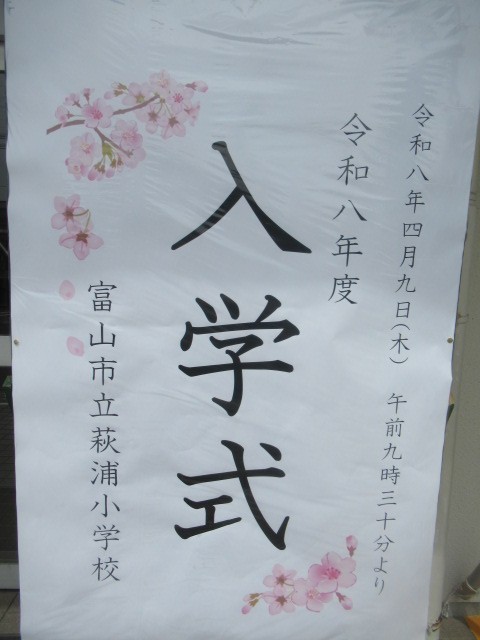 令和八年四月九日(木) 午前九時三十分より
令和八年度
入学式
富山市立萩浦小学校